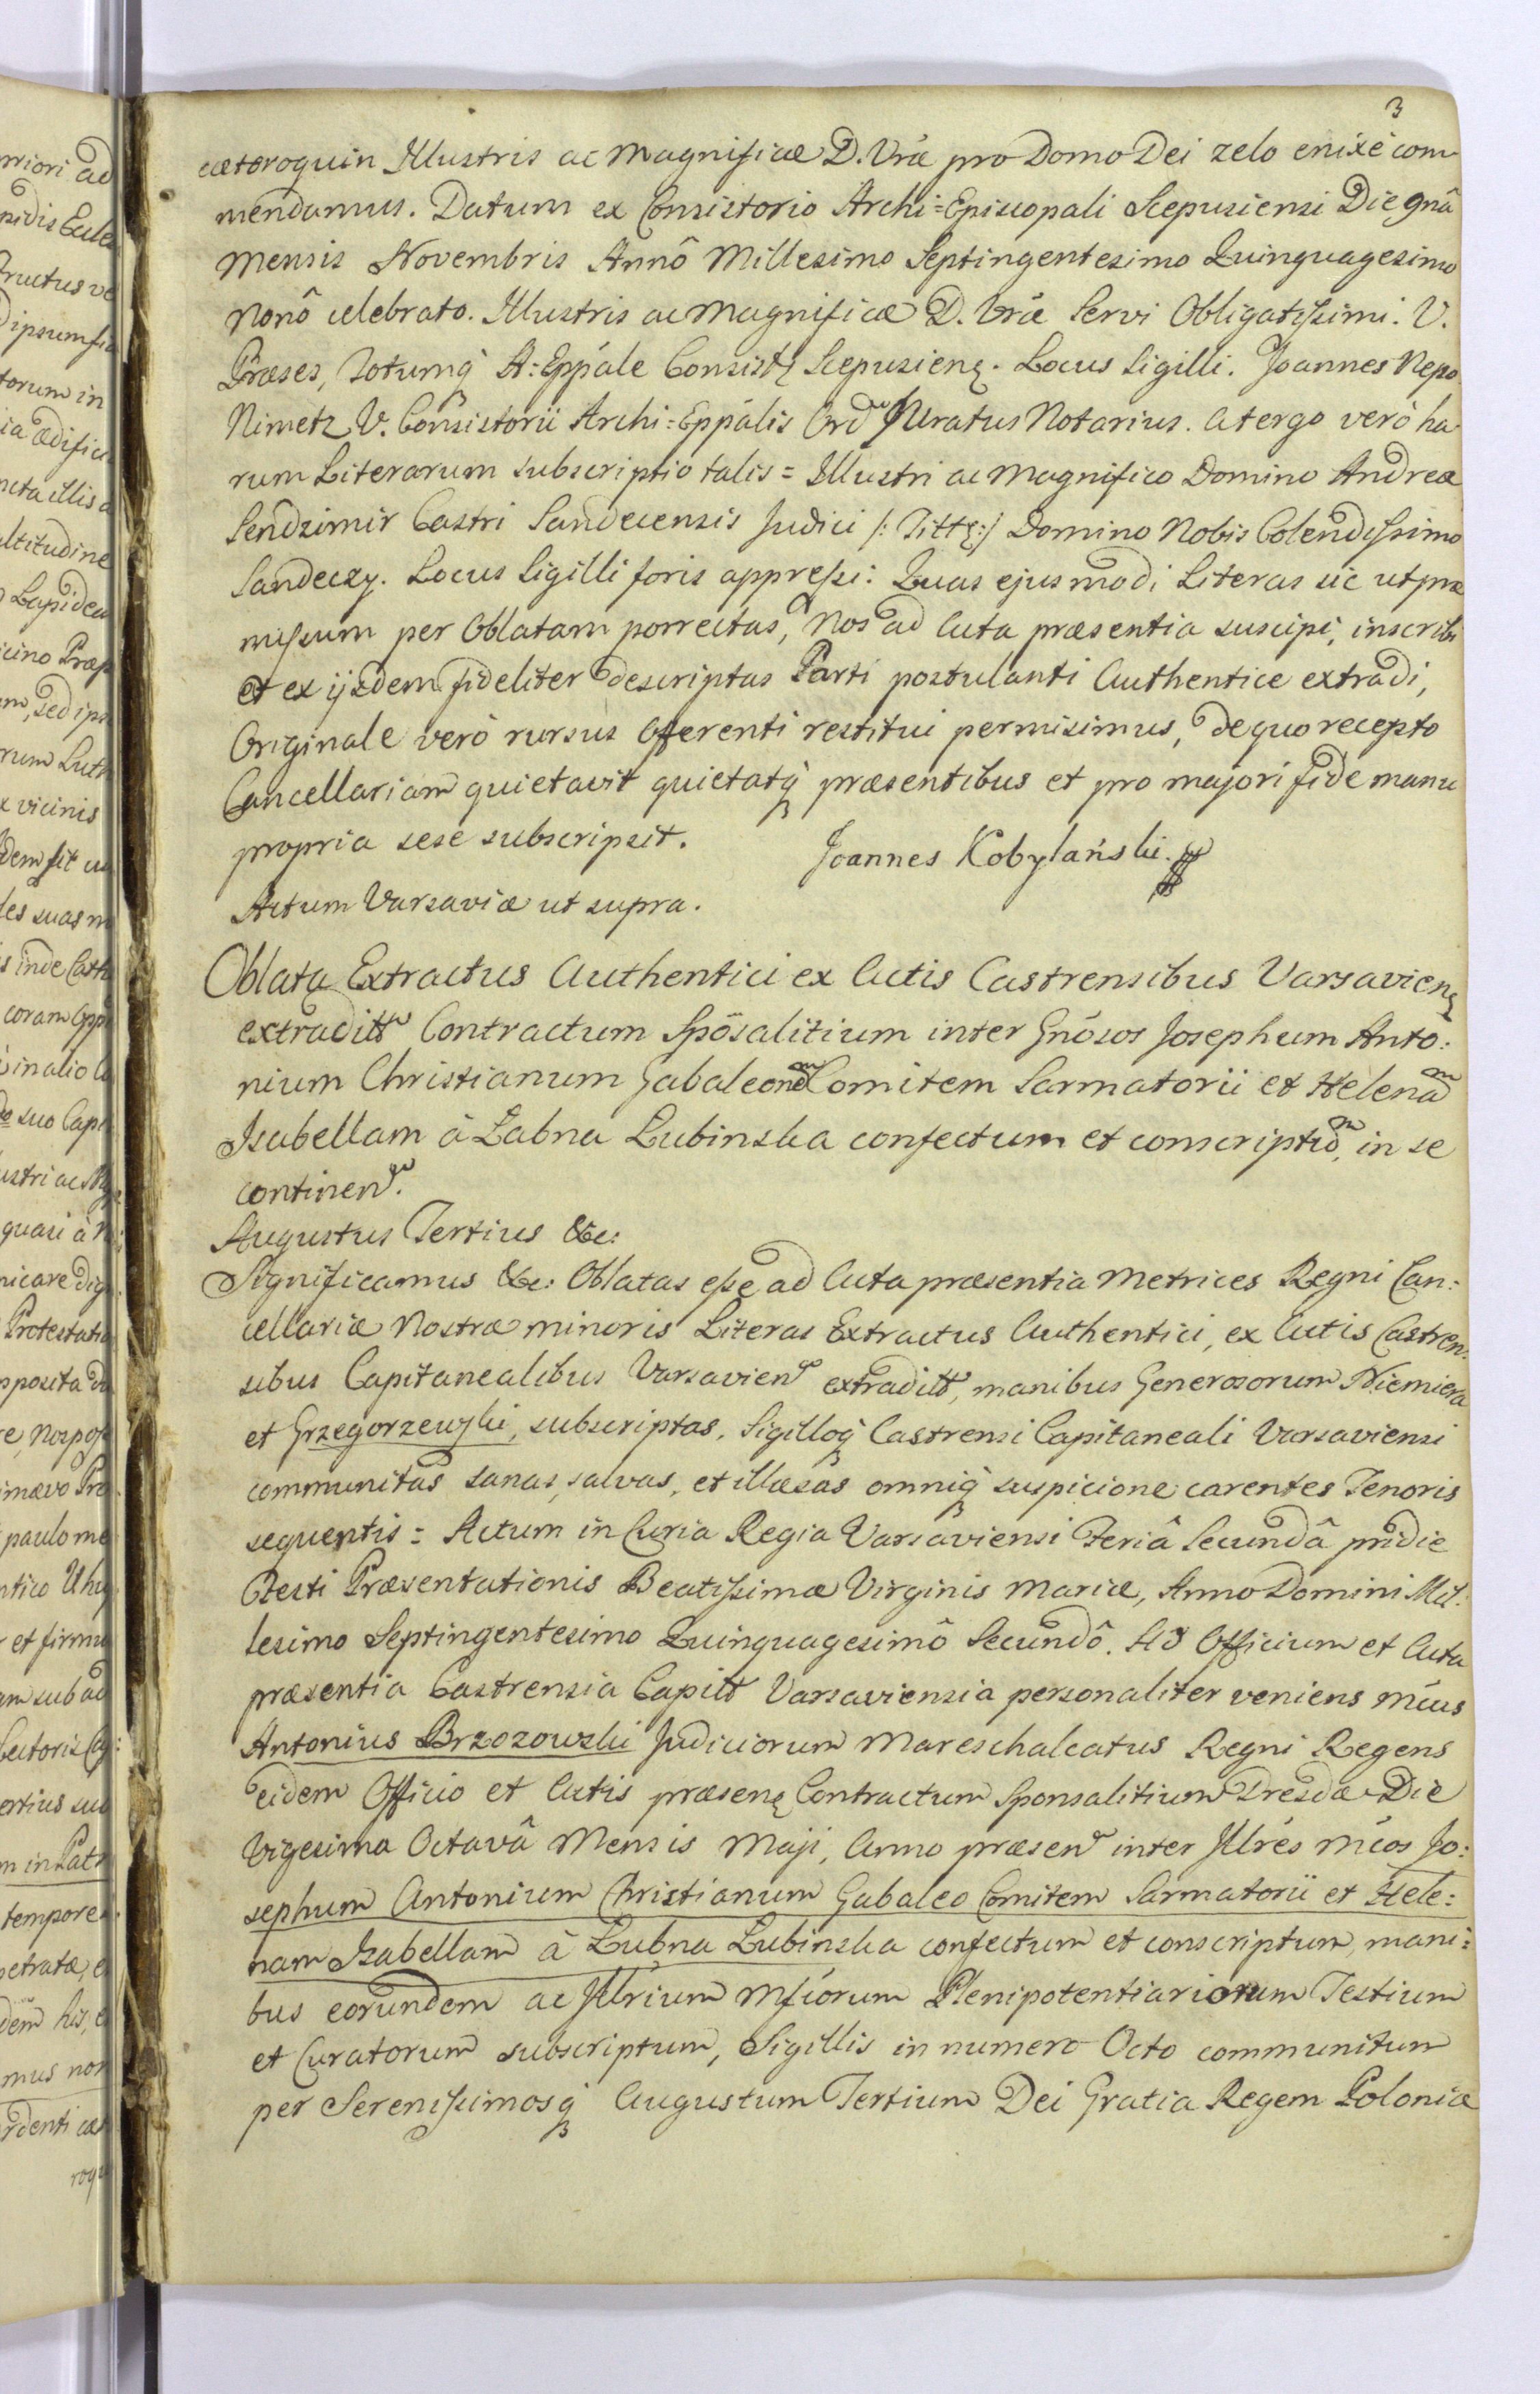 3
cæteroquin Illustris ac Magnificæ D. Vræ pro Domo Dei zelo enixè com
mendamus. Datum ex Consistorio Archi=Episcopali Scepusiensi Die 9nâ
Mensis Novembris Annô Millesimo Septingentesimo Quinquagesimo
Nonô celebrato. Illustris ac Magnificæ D. Vræ Servi Obligatissimi. V.
Præses, totumq A: Eppále Consistę Scepusienę. Locus Sigilli. Joannes Nepo
Nimetz V. Consistorii Archi=Eppális Ord Juratus Notarius. A tergo verò ha
rum Literarum subscriptio talis = Illustri ac Magnifico Domino Andreæ
Sendzimir Castri Sandecensis Judici /: Tittę :/ Domino Nobis Colendissimo
Sandeczy. Locus Sigilli foris appressi: Quas ejusmodi Literas sic ut præ
missum per Oblatam porrectas, Nos ad Acta præsentia suscipi, inscribi
et ex ijsdem fideliter descriptas Parti postulanti Authentice extradi,
Originale verò rursus Offerenti restitui permisimus, de quo recepto
Cancellariam quietavit quietatq præsentibus et pro majori fide manu
propria sese subscripsit. Joannes Kobylański.
Actum Varsaviæ ut supra.
Oblata Extractus Authentici ex Actis Castrensibus Varsavienę
extraditt Contractum Spôsalitium inter Gnósos Josephum Anto:
nium Christianum Gabaleonem Comitem Sarmatorii et Helenam
Isabellam à Łabna Lubinska confectum et conscriptum, in se
continen.
Augustus Tertius &c:
Significamus &c: Oblatas esse ad Acta præsentia Metrices Regni Can:
cellariæ Nostræ minoris Literas Extractus Authentici, ex Actis Castren:
sibus Capitanealibus Varsavien extraditt, manibus Generosorum Niemiera
et Grzegorzewski, subscriptas, Sigilloq Castrensi Capitaneali Varsaviensi
communitas sanas, salvas, et illæsas omniq suspicione carentes Tenoris
sequentis = Actum in Curia Regia Varsaviensi Feriâ Secundâ pridie
Festi Præsentationis Beatissimæ Virginis Mariæ, Anno Domini Mil:
lesimo Septingentesimo Quinquagesimô Secundô. Ad Officium et Acta
præsentia Castrensia Capitt Varsaviensia personaliter veniens Mcus
Antonius Brzozowski Judiciorum Mareschalcatus Regni Regens
eidem Officio et Actis præsenę Contractum Sponsalitium Dresdæ Die
Vigesima Octavâ Mensis Maji, Anno præsen inter Illrés Mcos Jo:
sephum Antonium Christianum Gabaleo Comitem Sarmatorii et Hele:
nam Isabellam à Łubna Lubinska confectum et conscriptum, mani:
bus eorundem ac Illrium Mficorum Plenipotentiariorum Testium
et Curatorum subscriptum, Sigillis in numero Octo communitum
per Serenissimosq Augustum Tertium Dei Gratia Regem Poloniæ